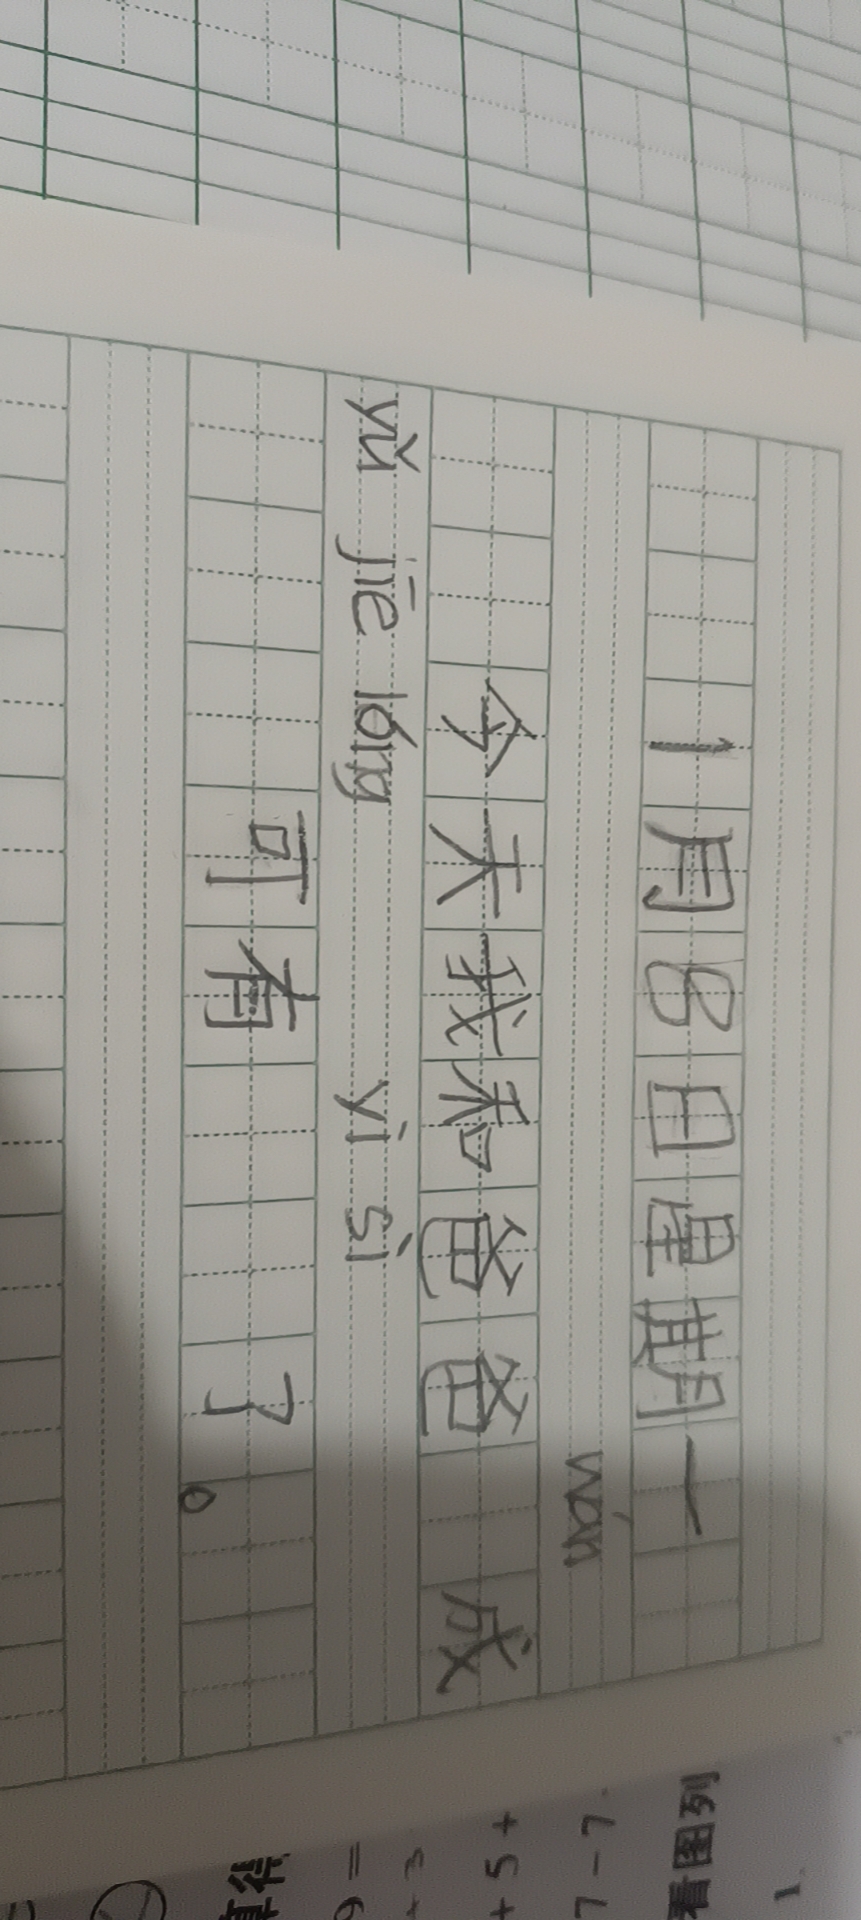 1月8日星期一
wán
今天我和爸爸 成
yǔ jiē lóng yì sì
可有 了。
1.
看图列
7-7
+5+
+3
9=